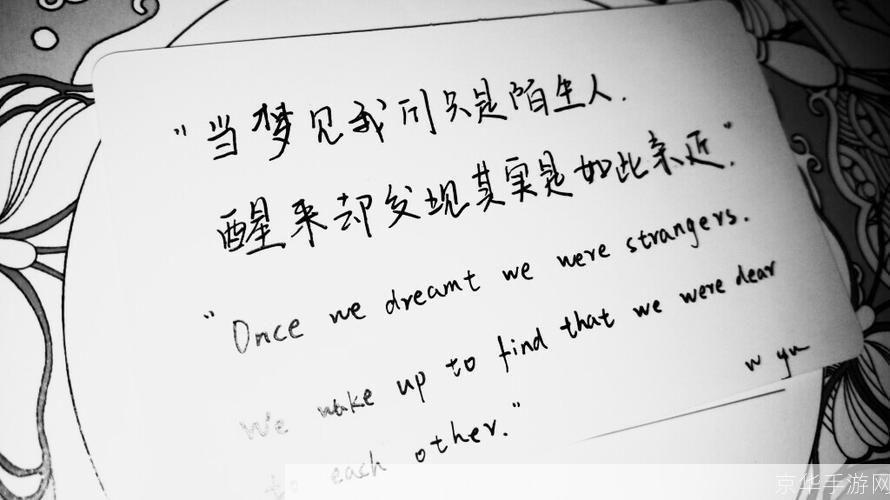 "当梦见我们只是陌生人.
醒来却发现其实是如此亲近."
"Once we dreamt we were strangers.
We wake up to find that we were dear
to each other."
w yu
京华手游网